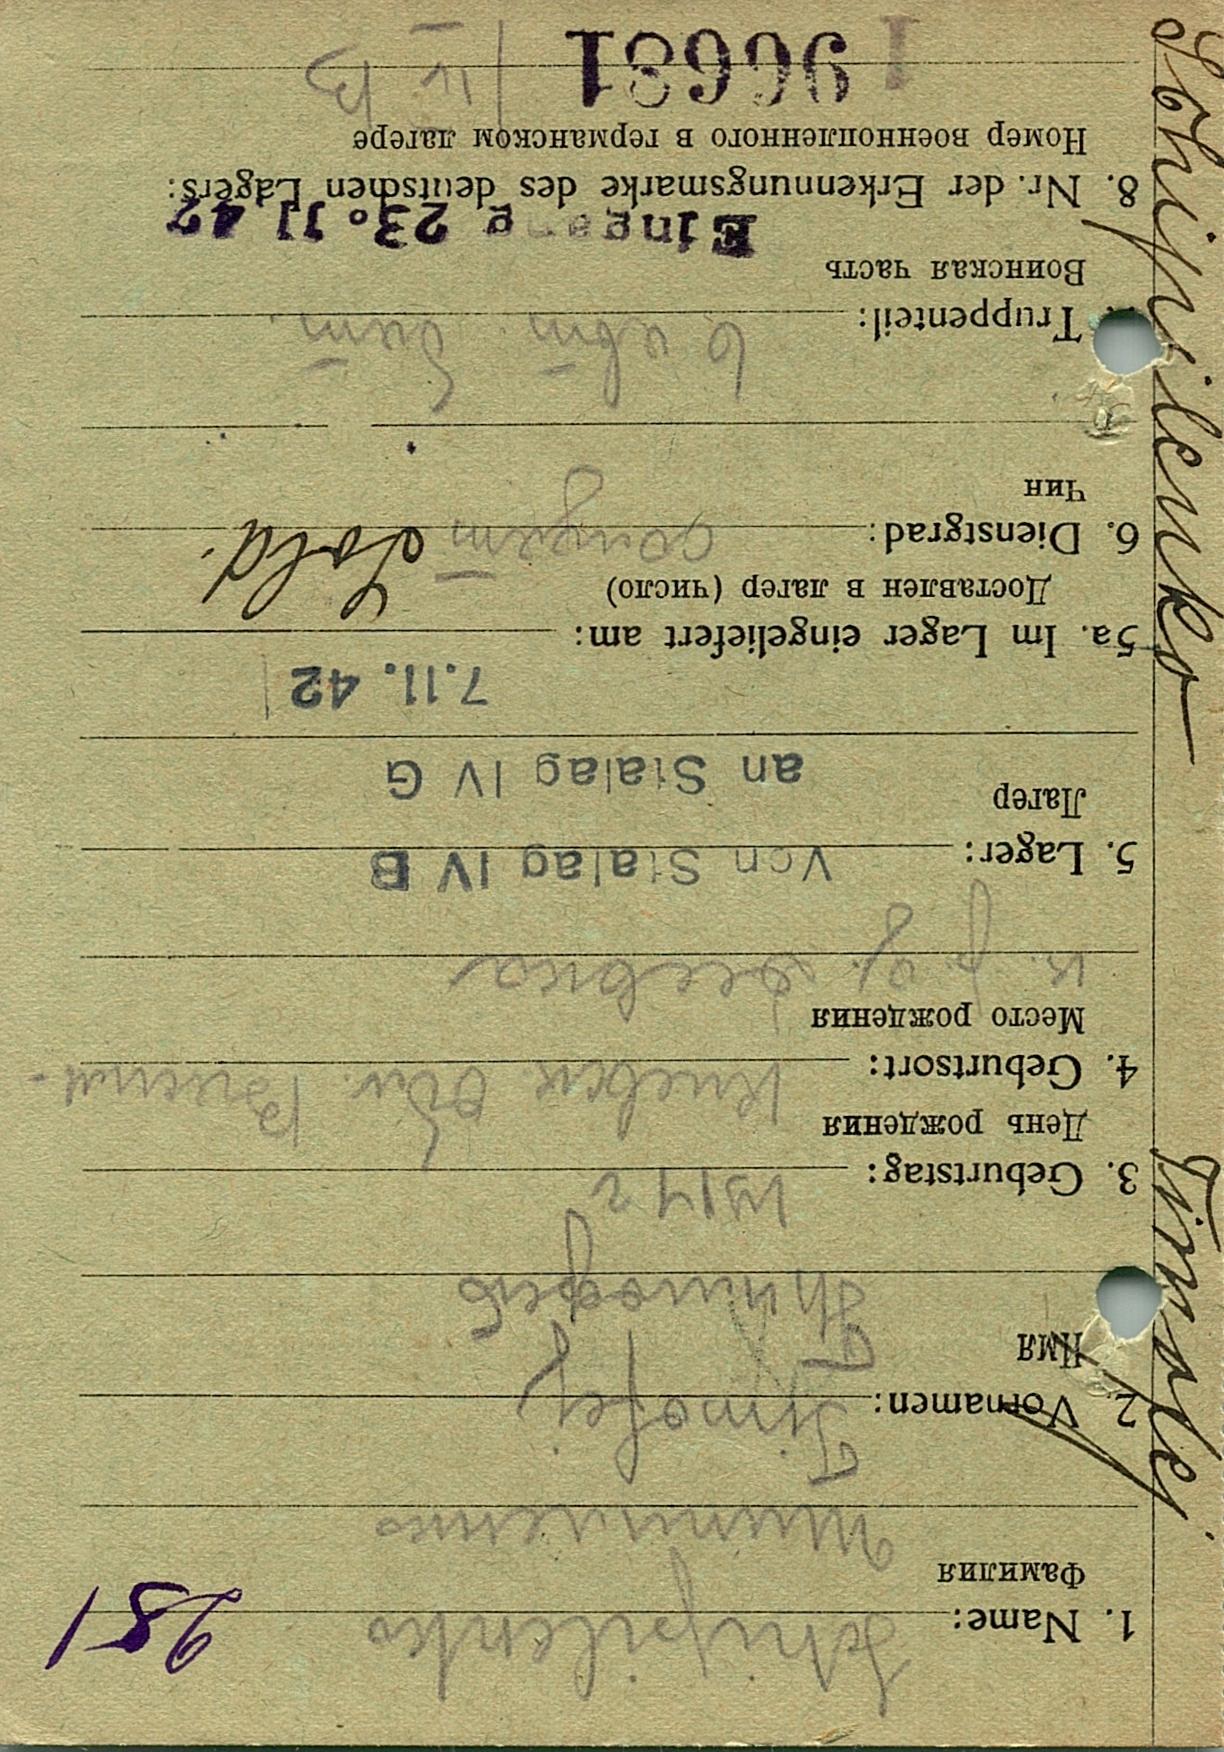 281
1. Name: Schipilenko
Фамилия
Шипиленко
2. Vornamen: Timofej
Имя
Тимофей
3. Geburtstag:
День рождения
4. Geburtsort:
Место рождения
5. Lager: Von Stalag IV B
Лагер
an Stalag IV G
7.11.42
5a. Im Lager eingeliefert am:
Доставлен в лагер (число)
6. Dienstgrad: Sold.
Чин
Truppenteil:
Воинская часть
Eingang 23.11.42
8. Nr. der Erkennungsmarke des deutschen Lagers:
Номер военнопленного в германском лагере
196631 / IV B
Schipilenko Timofej